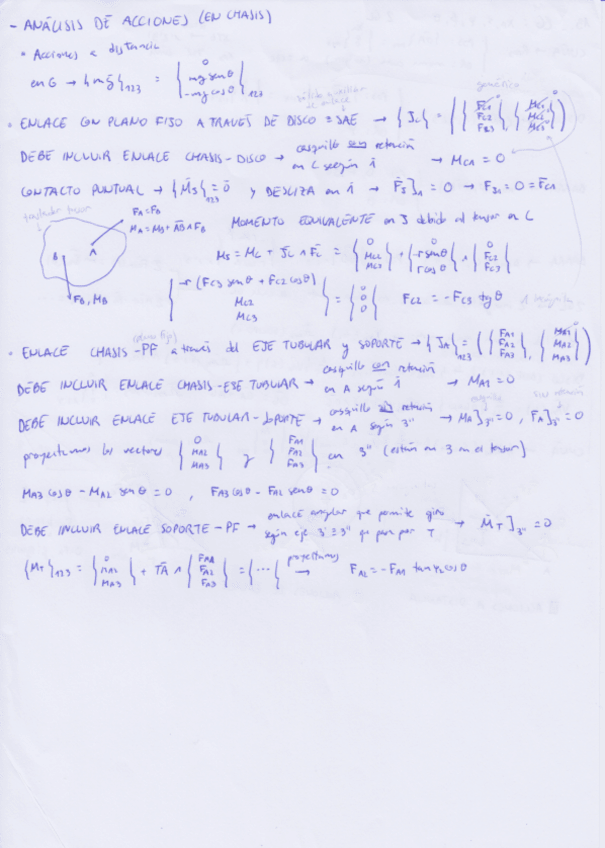 - ANÁLISIS DE ACCIONES (EN CHASIS)
• Acciones a distancia
en G → {m\bar{g}}_{123} = {0, mg senθ, -mg cosθ}_{123}
sólido auxiliar de enlace
genérico
• ENLACE CON PLANO FIJO A TRAVÉS DE DISCO = SAE → {J_L} = ({F_{C1}, F_{C2}, F_{C3}}, {M_{C1}, M_{C2}, M_{C3}})
DEBE INCLUIR ENLACE CHASIS-DISCO → casquillo con retención en L según \bar{1} → M_{C1} = 0
CONTACTO PUNTUAL → {\bar{M}_J} = \bar{0} y DESLIZA en \bar{1} → \bar{F}_J]_1 = 0 → F_{J1} = 0 = F_{C1}
trasladar tensor
F_A = F_B
M_A = M_B + \bar{AB} ∧ F_B
B A
F_B, M_B
MOMENTO EQUIVALENTE en J debido al tensor en L
M_J = M_L + \bar{JL} ∧ \bar{F}_L = {0, M_{C2}, M_{C3}} + {0, -r senθ, r cosθ} ∧ {0, F_{C2}, F_{C3}}
{-r (F_{C3} senθ + F_{C2} cosθ), M_{C2}, M_{C3}} = {0, 0, 0} F_{C2} = -F_{C3} tgθ
(plano fijo)
• ENLACE CHASIS-PF a través del EJE TUBULAR y SOPORTE → {J_A}_{123} = ({F_{A1}, F_{A2}, F_{A3}}, {M_{A1}, M_{A2}, M_{A3}})
DEBE INCLUIR ENLACE CHASIS-EJE TUBULAR → casquillo con retención en A según \bar{1} → M_{A1} = 0
DEBE INCLUIR ENLACE EJE TUBULAR-SOPORTE → casquillo sin retención en A según 3" → M_A]_{3"} = 0, F_A]_{3"} = 0
casquillo sin retención
proyectamos los vectores {0, M_{A2}, M_{A3}} y {F_{A1}, F_{A2}, F_{A3}} en 3" (están en 3 en el tensor)
M_{A3} cosθ - M_{A2} senθ = 0, F_{A3} cosθ - F_{A2} senθ = 0
DEBE INCLUIR ENLACE SOPORTE-PF → enlace angular que permite giro según eje 3' ≡ 3" que pasa por T → \bar{M}_T]_{3"} = 0
{M_T}_{123} = {0, M_{A2}, M_{A3}} + \bar{TA} ∧ {F_{A1}, F_{A2}, F_{A3}} = {...} proyectamos → F_{A2} = -F_{A1} tanψ cosθ